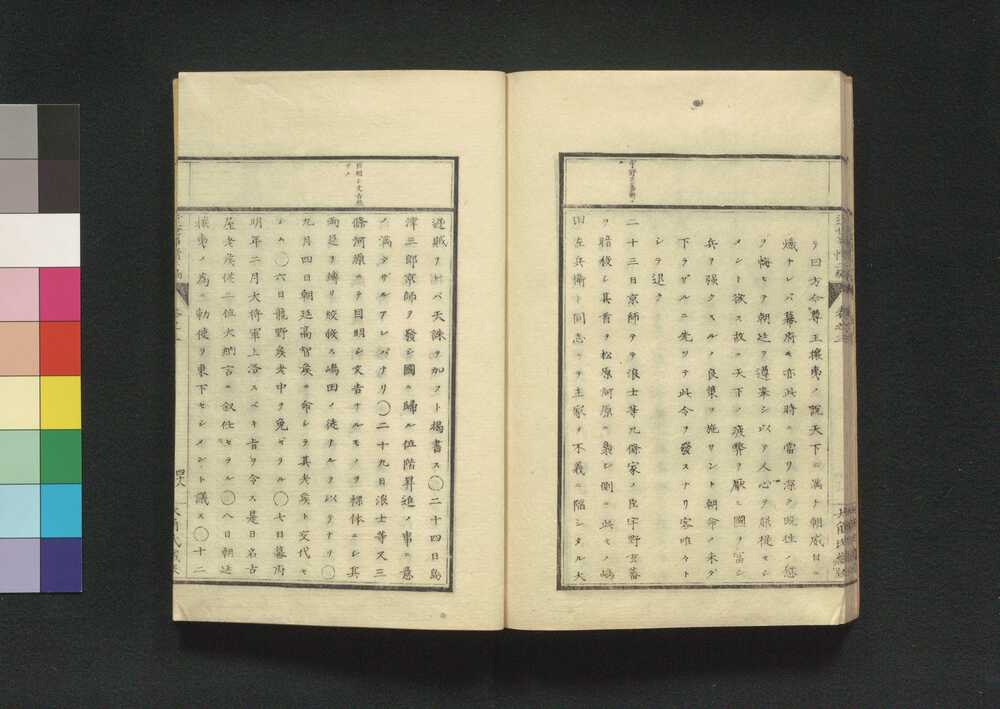 リ曰方今尊王攘夷ノ說天下ニ滿ト朝威日ニ
熾ナレバ幕府モ亦此時ニ當リ深ク旣往ノ愆
ヲ悔ヒヲ朝廷ヲ遵奉シ以テ人心ヲ服從セシ
メント欲ス故ニ天下ノ疲弊ヲ厭ヒ國ヲ富シ
兵ヲ强クスルノ良策ヲ施サント朝命ノ未ダ
下ラザルニ先ツテ此令ヲ發スナリ容唯々ト
シテ退ク
二十三日京師ニテ浪士等九條家ノ臣宇野玄蕃
ヲ暗殺シ其首ヲ松原河原ニ梟シ側ニ此モノ嶋
田左兵衞ト同志ニテ主家ヲ不義ニ陷シタル大
逆賊ヲ バ天誅ヲ加フト揭書ス◯二十四日島
津三郞京師ヲ發シ國ニ歸ル位階昇進ノ事ニ意
ノ滿タザルアレバナリ◯二十九日浪士等又三
條河原ニテ目明シ文吉ナルモノヲ裸体ニシ其
兩足ヲ縛リ絞殺ス嶋田ノ徒ナルヲ以テナリ◯
九月四日朝廷高智矦ニ命シテ其老矦ト交代セ
シム◯六日龍野矦老中ヲ免ゼラル◯七日幕府
明年二月大將軍上洛スベキ旨ヲ令ス是日名古
屋老矦從二位大納言ニ叙任セラル◯八日朝廷
攘夷ノ爲ニ勅使リ東下セシメント議ス◯十二